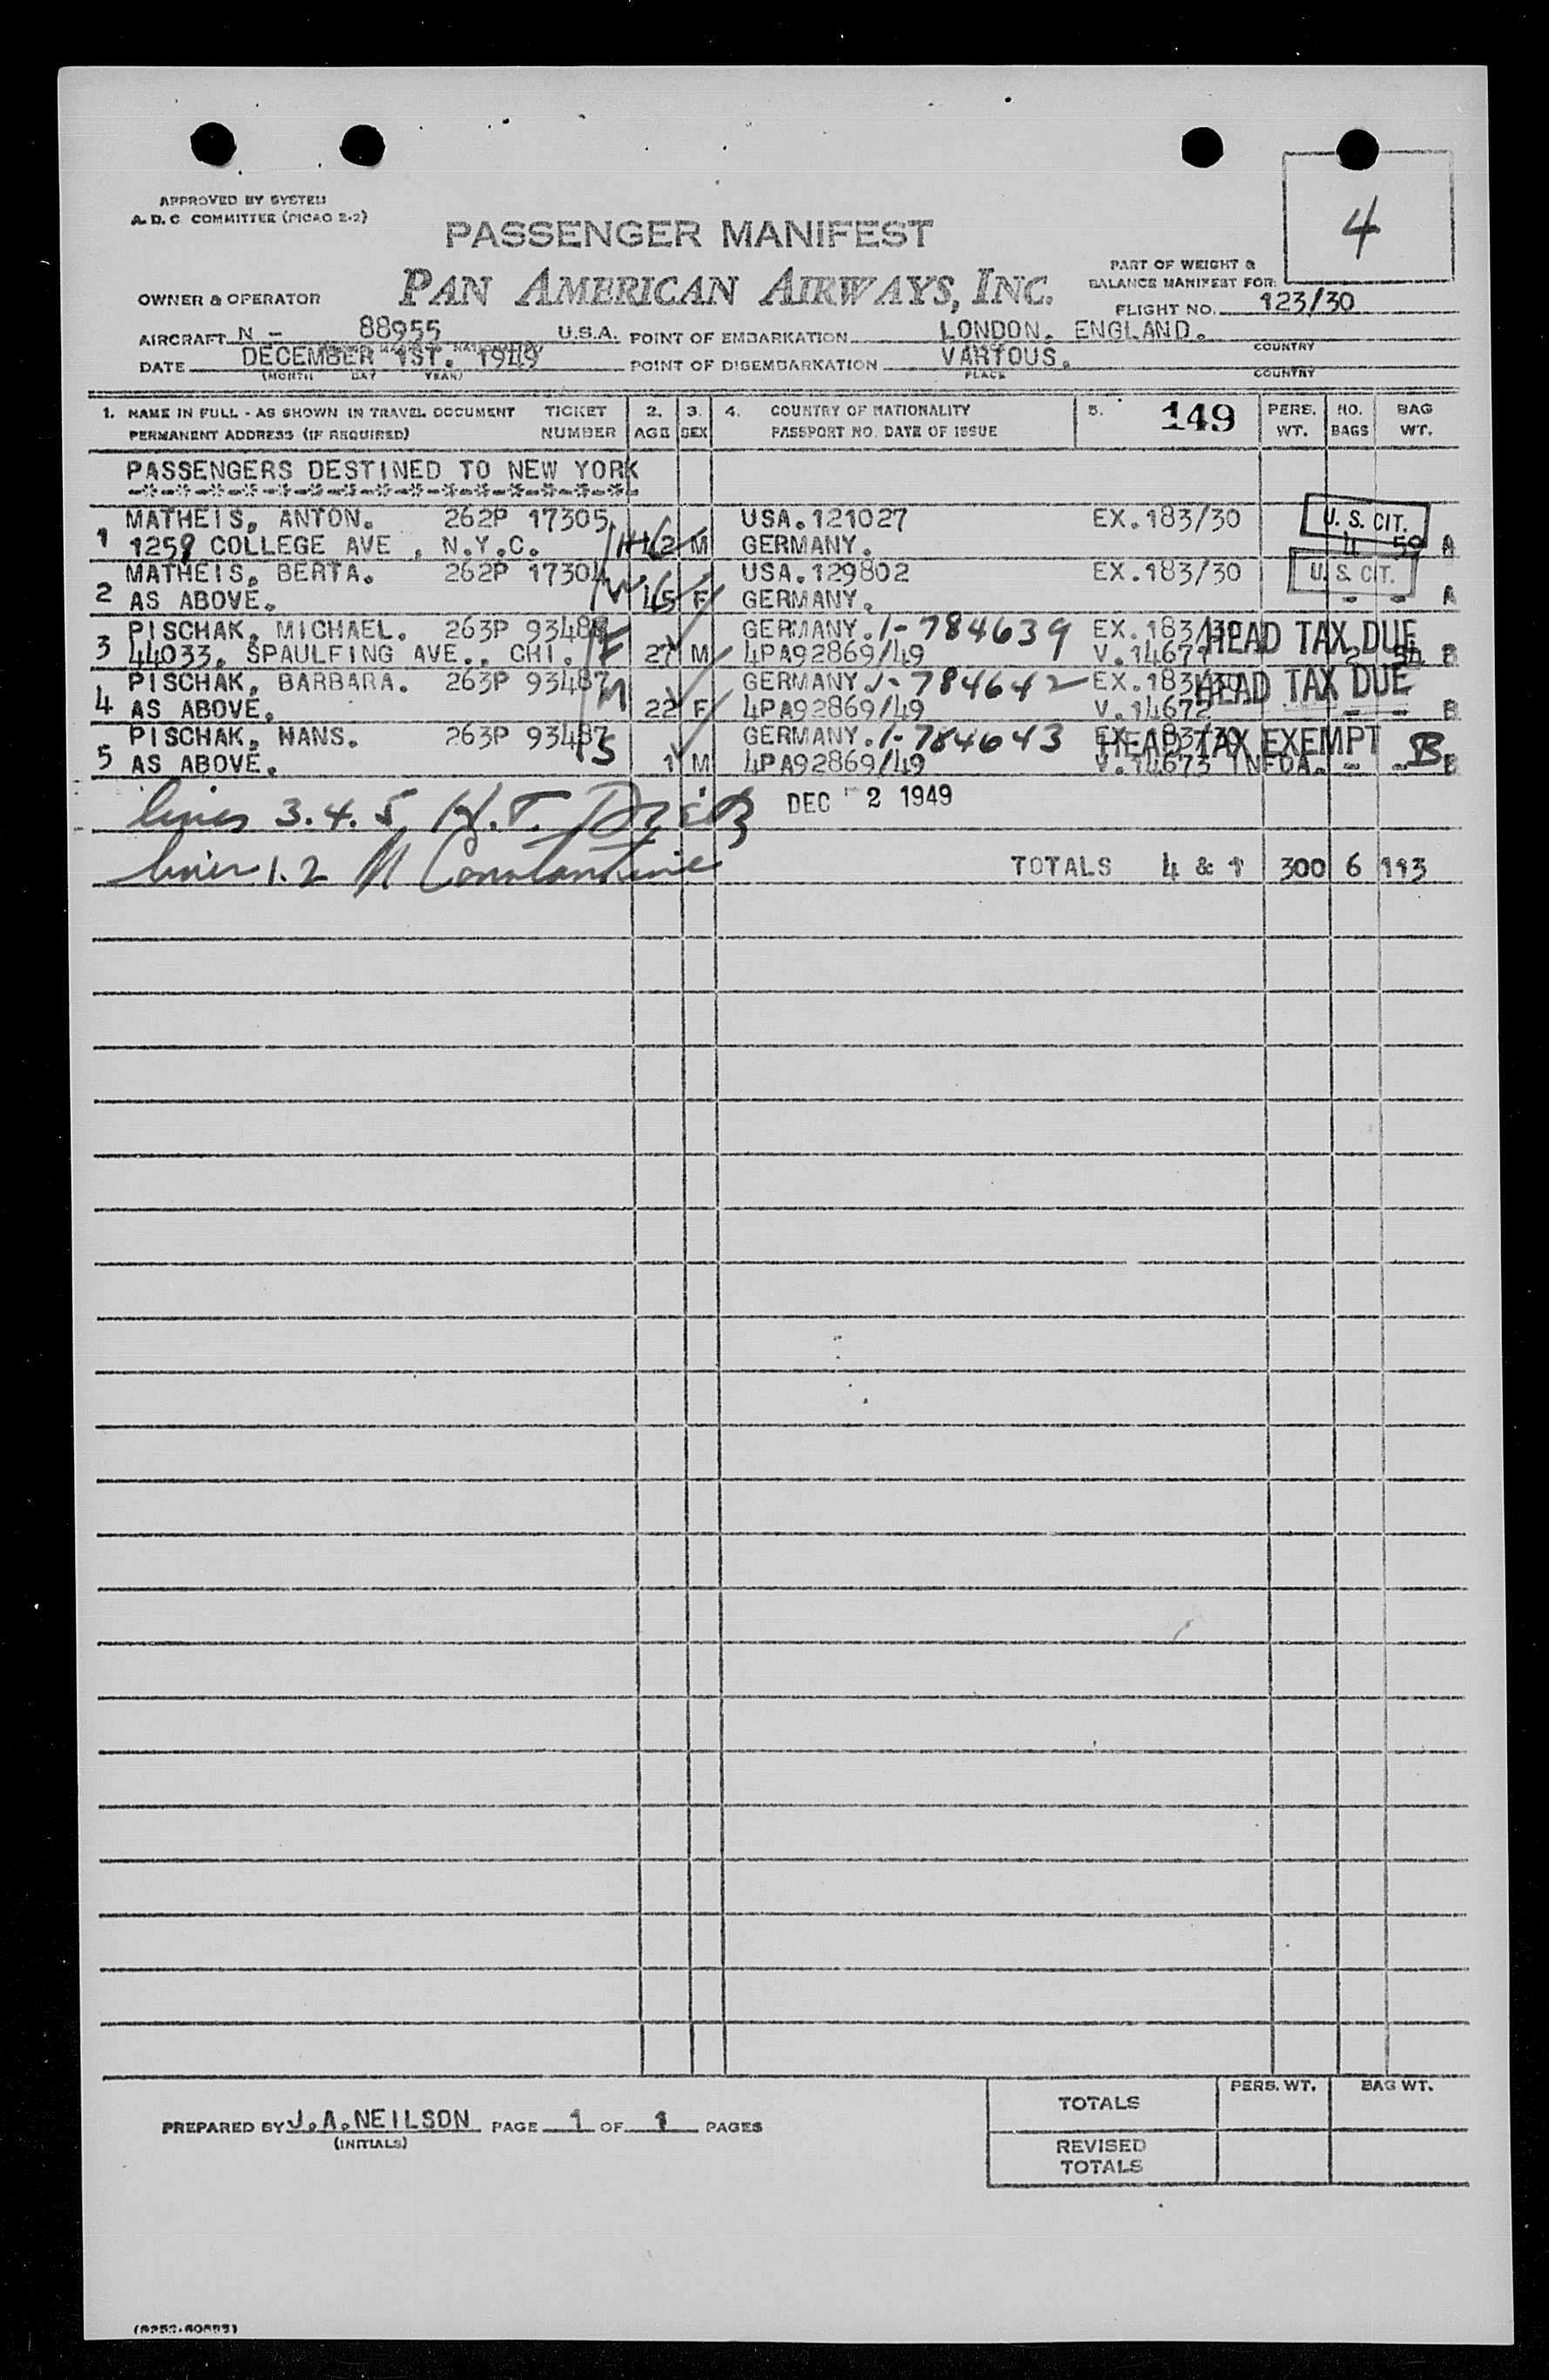 APPROVED BY SYSTEM
A. D. C COMMITTEE (PICAO 2-2)
4
PASSENGER MANIFEST
PAN AMERICAN AIRWAYS, INC.
PART OF WEIGHT &
BALANCE MANIFEST FOR:
OWNER & OPERATOR
FLIGHT NO. 123/30
AIRCRAFT N - 88955 U.S.A. POINT OF EMBARKATION LONDON. ENGLAND.
COUNTRY
DATE DECEMBER 1ST. 1949 POINT OF DISEMBARKATION VARIOUS.
(MONTH DAY YEAR) PLACE COUNTRY
1. NAME IN FULL - AS SHOWN IN TRAVEL DOCUMENT TICKET 2. 3. 4. COUNTRY OF NATIONALITY 5. 149 PERS. NO. BAG
PERMANENT ADDRESS (IF REQUIRED) NUMBER AGE SEX PASSPORT NO. DATE OF ISSUE WT. BAGS WT.
PASSENGERS DESTINED TO NEW YORK
-*-*-*-*-*-*-*-*-*-*-*-*-*-*-*-
MATHEIS, ANTON. 262P 17305 USA.121027 EX.183/30 U. S. CIT.
1 1259 COLLEGE AVE , N.Y.C. H 42 M GERMANY. 4 59 A
MATHEIS, BERTA. 262P 17304 USA.129802 EX.183/30 U. S. CIT.
2 AS ABOVE. W 45 F GERMANY. - - A
PISCHAK, MICHAEL. 263P GERMANY. 1-784639 EX.183/30 HEAD TAX DUE
3 44033. SPAULFING AVE., CHI. F 27 M 4PA92869/49 V.14671 2 B
PISCHAK, BARBARA. 263P 93487 GERMANY 1-784642 EX.183/30 HEAD TAX DUE
4 AS ABOVE. M 22 F 4PA92869/49 V.14672 - - B
PISCHAK, HANS. 263P 93487 GERMANY. 1-784643 EX.183/30 HEAD TAX EXEMPT
5 AS ABOVE. S 1 M 4PA92869/49 V.14673 - - B B
lines 3. 4. 5 H. T. DEC 2 1949
lines 1. 2 M Constantine TOTALS 4 & 1 300 6 113
TOTALS PERS. WT. BAG WT.
PREPARED BY J.A.NEILSON PAGE 1 OF 1 PAGES
(INITIALS)
REVISED
TOTALS